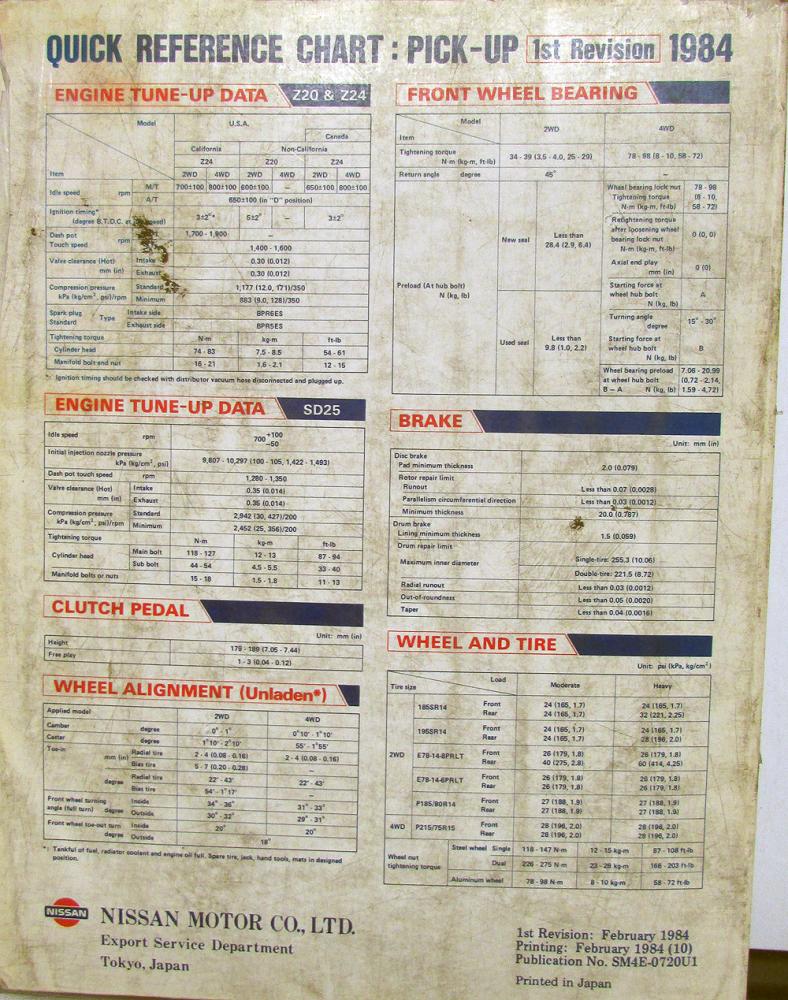 QUICK REFERENCE CHART : PICK-UP 1st Revision 1984
ENGINE TUNE-UP DATA Z20 & Z24
Model U.S.A. Canada
California Non-California
Z24 Z20 Z24
Item 2WD 4WD 2WD 4WD 2WD 4WD
Idle speed rpm M/T 700±100 800±100 600±100 – 650±100 800±100
A/T 650±100 (in "D" position)
Ignition timing*
(degree B.T.D.C. at speed) 3±2°* 5±2° – 3±2°
Dash pot
Touch speed rpm 1,700 - 1,900 –
1,400 - 1,600
Valve clearance (Hot) Intake 0.30 (0.012)
mm (in) Exhaust 0.30 (0.012)
Compression pressure Standard 1,177 (12.0, 171)/350
kPa (kg/cm², psi)/rpm Minimum 883 (9.0, 128)/350
Spark plug Type Intake side BPR6ES
Standard Exhaust side BPR5ES
Tightening torque N·m kg-m ft-lb
Cylinder head 74 - 83 7.5 - 8.5 54 - 61
Manifold bolt and nut 16 - 21 1.6 - 2.1 12 - 15
*: Ignition timing should be checked with distributor vacuum hose disconnected and plugged up.
ENGINE TUNE-UP DATA SD25
Idle speed rpm 700 +100 −50
Initial injection nozzle pressure
kPa (kg/cm², psi) 9,807 - 10,297 (100 - 105, 1,422 - 1,493)
Dash pot touch speed rpm 1,280 - 1,350
Valve clearance (Hot) Intake 0.35 (0.014)
mm (in) Exhaust 0.35 (0.014)
Compression pressure Standard 2,942 (30, 427)/200
kPa (kg/cm², psi)/rpm Minimum 2,452 (25, 356)/200
Tightening torque N·m kg-m ft-lb
Cylinder head Main bolt 118 - 127 12 - 13 87 - 94
Sub bolt 44 - 54 4.5 - 5.5 33 - 40
Manifold bolts or nuts 15 - 18 1.5 - 1.8 11 - 13
CLUTCH PEDAL
Unit: mm (in)
Height 179 - 189 (7.05 - 7.44)
Free play 1 - 3 (0.04 - 0.12)
WHEEL ALIGNMENT (Unladen*)
Applied model 2WD 4WD
Camber degree 0° - 1° 0°10' - 1°10'
Caster degree 1°10' - 2°10' 55' - 1°55'
Toe-in mm (in) Radial tire 2 - 4 (0.08 - 0.16) 2 - 4 (0.08 - 0.16)
Bias tire 5 - 7 (0.20 - 0.28) –
degree Radial tire 22' - 43' 22' - 43'
Bias tire 54' - 1°17' –
Front wheel turning Inside 34° - 36° 31° - 33°
angle (full turn) degree Outside 30° - 32° 29° - 31°
Front wheel toe-out turn Inside 20° 20°
degree Outside 18°
*: Tankful of fuel, radiator coolant and engine oil full. Spare tire, jack, hand tools, mats in designed
position.
NISSAN
NISSAN MOTOR CO., LTD.
Export Service Department
Tokyo, Japan
FRONT WHEEL BEARING
Model 2WD 4WD
Item
Tightening torque
N·m (kg-m, ft-lb) 34 - 39 (3.5 - 4.0, 25 - 29) 78 - 98 (8 - 10, 58 - 72)
Return angle degree 45° –
Preload (At hub bolt)
N (kg, lb)
New seal Less than
28.4 (2.9, 6.4)
Used seal Less than
9.8 (1.0, 2.2)
Wheel bearing lock nut 78 - 98
Tightening torque (8 - 10,
N·m (kg-m, ft-lb) 58 - 72)
Retightening torque
after loosening wheel
bearing lock nut 0 (0, 0)
N·m (kg-m, ft-lb)
Axial end play
mm (in) 0 (0)
Starting force at
wheel hub bolt A
N (kg, lb)
Turning angle
degree 15° - 30°
Starting force at
wheel hub bolt B
N (kg, lb)
Wheel bearing preload 7.06 - 20.99
at wheel hub bolt (0.72 - 2.14,
B − A N (kg, lb) 1.59 - 4.72)
BRAKE
Unit: mm (in)
Disc brake
Pad minimum thickness 2.0 (0.079)
Rotor repair limit
Runout Less than 0.07 (0.0028)
Parallelism circumferential direction Less than 0.03 (0.0012)
Minimum thickness 20.0 (0.787)
Drum brake
Lining minimum thickness 1.5 (0.059)
Drum repair limit
Maximum inner diameter Single-tire: 255.3 (10.06)
Double-tire: 221.5 (8.72)
Radial runout Less than 0.03 (0.0012)
Out-of-roundness Less than 0.05 (0.0020)
Taper Less than 0.04 (0.0016)
WHEEL AND TIRE
Unit: psi (kPa, kg/cm²)
Load Moderate Heavy
Tire size
2WD
185SR14 Front 24 (165, 1.7) 24 (165, 1.7)
Rear 24 (165, 1.7) 32 (221, 2.25)
195SR14 Front 24 (165, 1.7) 24 (165, 1.7)
Rear 24 (165, 1.7) 28 (196, 2.0)
E78-14-8PRLT Front 26 (179, 1.8) 26 (179, 1.8)
Rear 40 (275, 2.8) 60 (414, 4.25)
E78-14-6PRLT Front 26 (179, 1.8) 26 (179, 1.8)
Rear 26 (179, 1.8) 26 (179, 1.8)
P185/80R14 Front 27 (188, 1.9) 27 (188, 1.9)
Rear 27 (188, 1.9) 27 (188, 1.9)
4WD P215/75R15 Front 28 (196, 2.0) 28 (196, 2.0)
Rear 28 (196, 2.0) 28 (196, 2.0)
Wheel nut
tightening torque
Steel wheel Single 118 - 147 N·m 12 - 15 kg-m 87 - 108 ft-lb
Dual 226 - 275 N·m 23 - 28 kg-m 166 - 203 ft-lb
Aluminum wheel 78 - 98 N·m 8 - 10 kg-m 58 - 72 ft-lb
1st Revision: February 1984
Printing: February 1984 (10)
Publication No. SM4E-0720U1
Printed in Japan